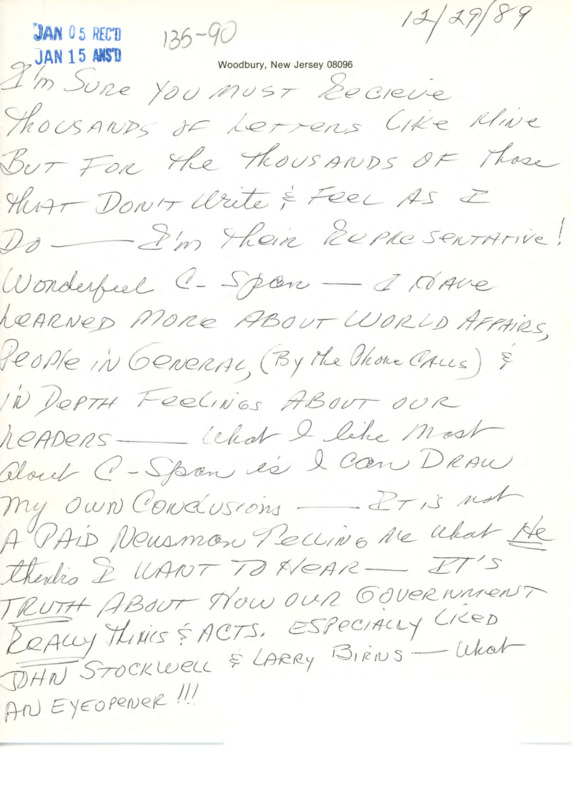 12/29/89
JAN 05 REC'D
135-90
JAN 15 ANS'D
Woodbury, New Jersey 08096
I'm Sure you must Recieve
Thousands of Letters Like Mine
But For the Thousands of Those
that Don't Write & Feel As I
Do — I'm their Representative!
Wonderful C-Span — I Have
Learned More About World Affairs,
People in General, (By the Phone Calls) &
in Depth Feelings About our
Leaders — What I like Most
about C-Span is I can Draw
my own Conclusions — It is not
A Paid Newsman Telling Me what He
thinks I want to Hear — It's
Truth About How our Government
Really Thinks & Acts. Especially Liked
John Stockwell & Larry Birns — What
An Eyeopener!!!